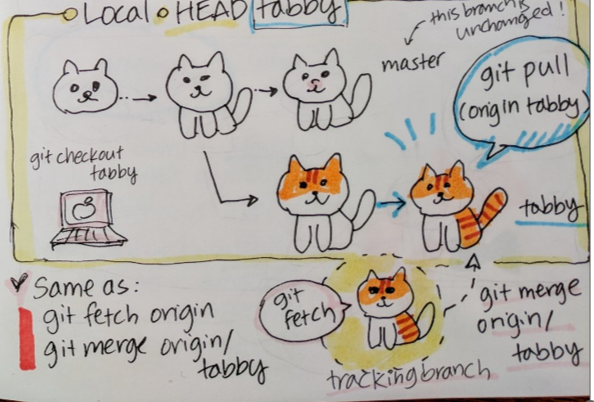 Local HEAD tabby
this branch is
unchanged!
master
git pull
(origin tabby)
git checkout
tabby
tabby
Same as:
git fetch origin
git merge origin/
tabby
git
fetch
tracking branch
git merge
origin/
tabby